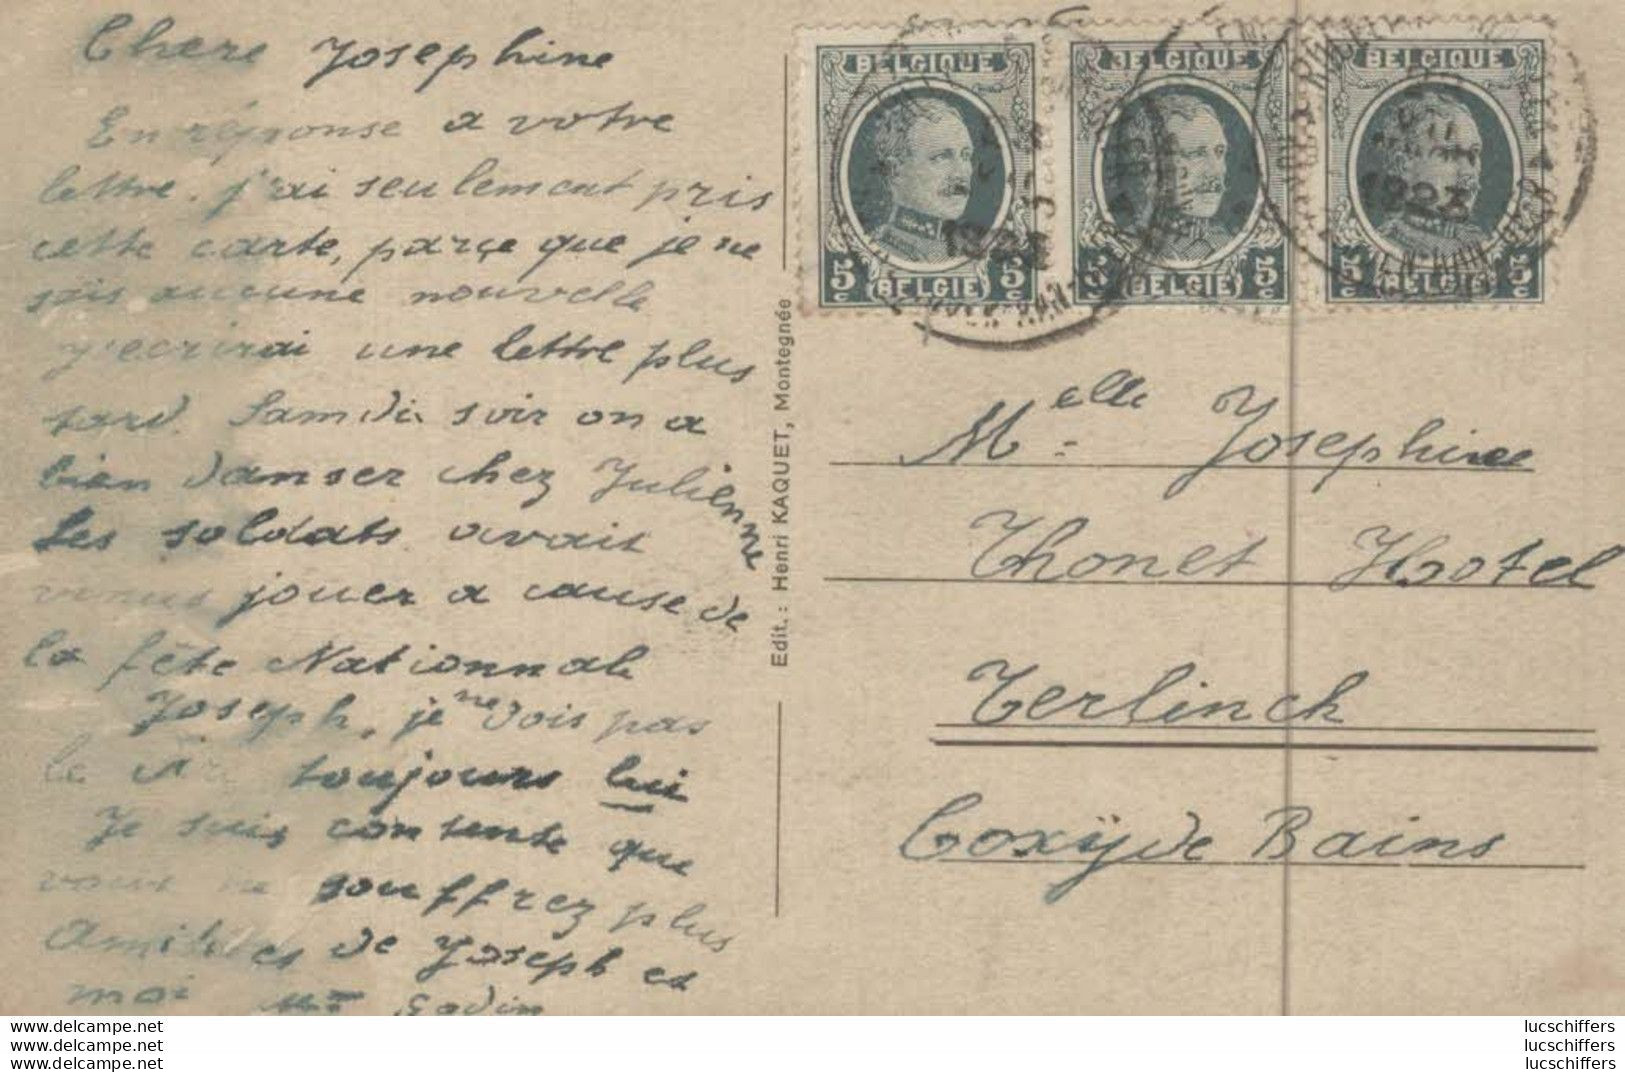 Chere Josephine
En réponse a votre
lettre. j'ai seulement pris
cette carte, parçe que je ne
sais aucune nouvelle
j'ecrirai une lettre plus
tard. Samdi soir on a
bien danser chez Julienne
Les soldats avait
venus jouer a cause de
la fête Nationnale
Joseph, je ne vois pas
le toujours lui
Je suis contente que
vous ne souffrez plus
Amitiées de Joseph et
moi Mme Godin
Edit. : Henri KAQUET, Montegnée
BELGIQUE
5c (BELGIE) 5c
BELGIQUE
5c (BELGIE) 5c
BELGIQUE
1923
5c (BELGIE) 5c
Melle Josephine
Thonet Hotel
Terlinck
Coxÿde Bains
www.delcampe.net
www.delcampe.net
www.delcampe.net
lucschiffers
lucschiffers
lucschiffers